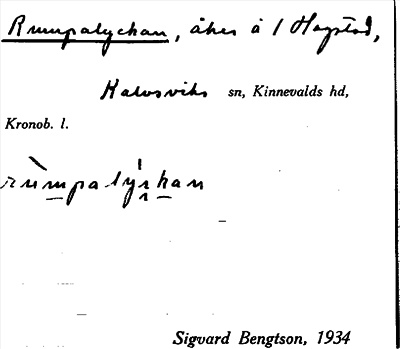 Rumpalyckan, åker å 1 Hagstad,
Kalvsviks sn, Kinnevalds hd,
Kronob. l.
Sigvard Bengtson, 1934